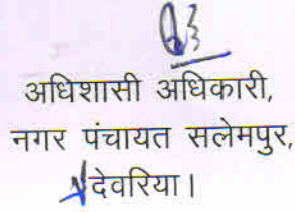 अधिशासी अधिकारी,
नगर पंचायत सलेमपुर,
देवरिया।